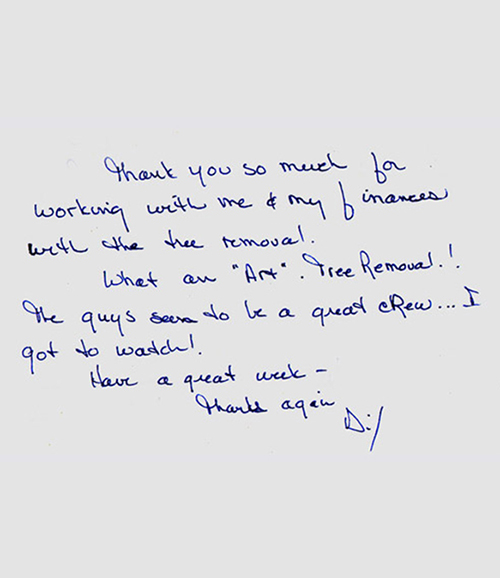 Thank you so much for
working with me & my finances
with the tree removal.
What an "Art". Tree Removal.!
The guys seem to be a great cRew... I
got to watch!
Have a great week –
Thanks again